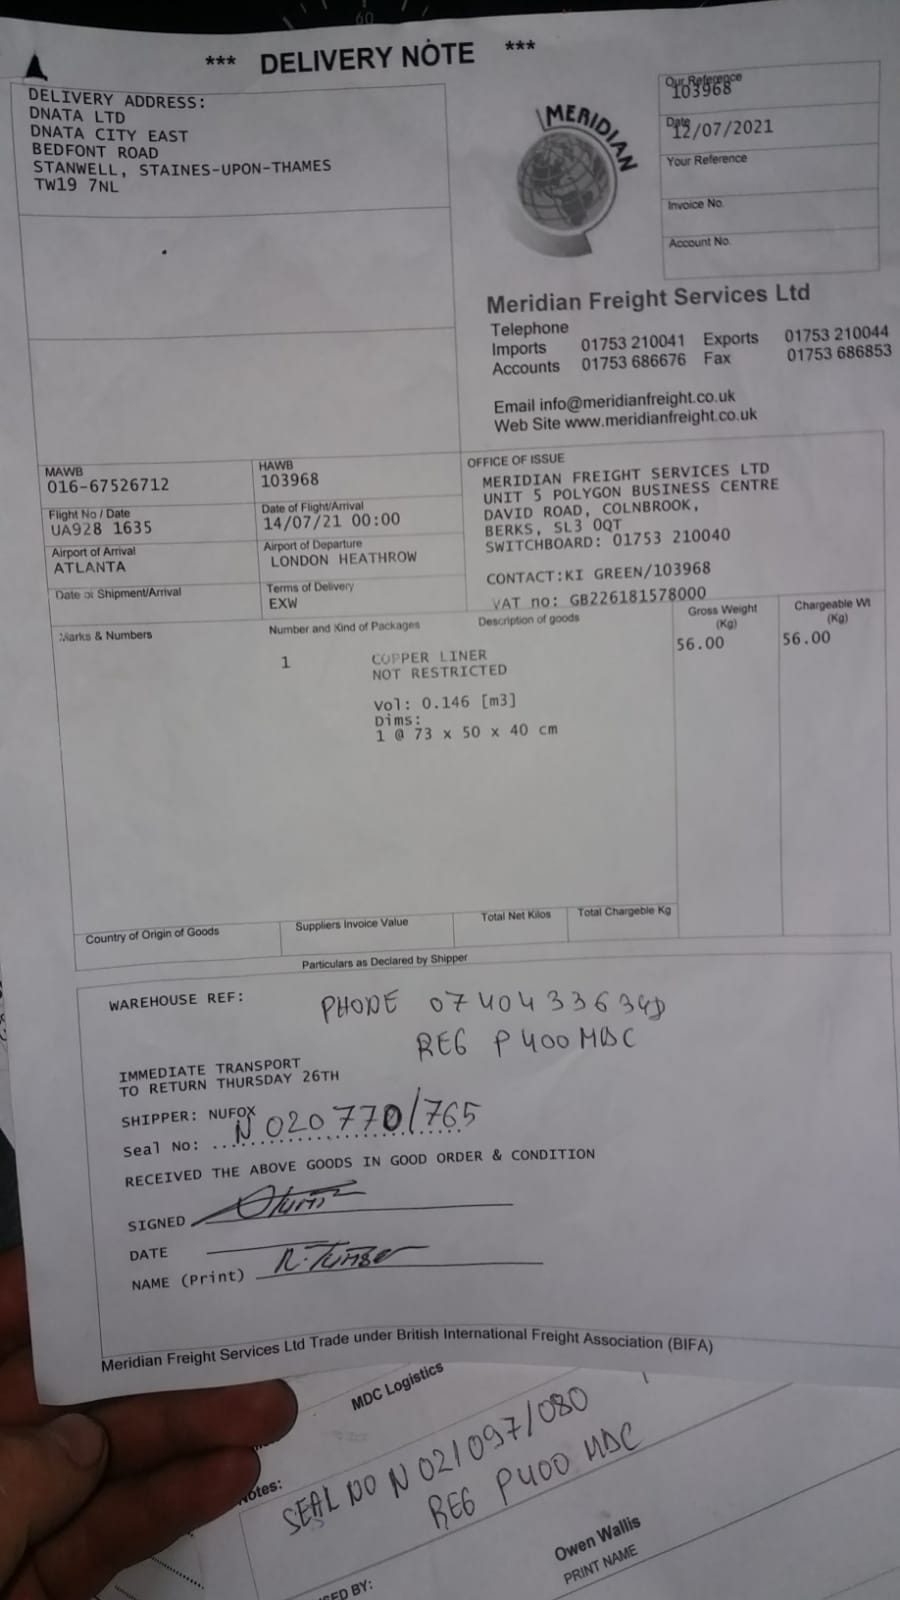 *** DELIVERY NOTE ***
DELIVERY ADDRESS:
DNATA LTD
DNATA CITY EAST
BEDFONT ROAD
STANWELL, STAINES-UPON-THAMES
TW19 7NL
MERIDIAN
Our Reference
103968
Date
12/07/2021
Your Reference
Invoice No.
Account No.
Meridian Freight Services Ltd
Telephone
Imports 01753 210041 Exports 01753 210044
Accounts 01753 686676 Fax 01753 686853
Email info@meridianfreight.co.uk
Web Site www.meridianfreight.co.uk
MAWB
016-67526712
HAWB
103968
Flight No / Date
UA928 1635
Date of Flight/Arrival
14/07/21 00:00
Airport of Arrival
ATLANTA
Airport of Departure
LONDON HEATHROW
Date of Shipment/Arrival
Terms of Delivery
EXW
OFFICE OF ISSUE
MERIDIAN FREIGHT SERVICES LTD
UNIT 5 POLYGON BUSINESS CENTRE
DAVID ROAD, COLNBROOK,
BERKS, SL3 0QT
SWITCHBOARD: 01753 210040
CONTACT:KI GREEN/103968
VAT no: GB226181578000
Marks & Numbers
Number and Kind of Packages
Description of goods
Gross Weight
(Kg)
Chargeable Wt
(Kg)
1 COPPER LINER 56.00 56.00
NOT RESTRICTED
Vol: 0.146 [m3]
Dims:
1 @ 73 x 50 x 40 cm
Country of Origin of Goods
Suppliers Invoice Value
Total Net Kilos
Total Chargeble Kg
Particulars as Declared by Shipper
WAREHOUSE REF:
PHONE
REG P400 MDC
IMMEDIATE TRANSPORT
TO RETURN THURSDAY 26TH
SHIPPER: NUFOX
Seal No: N 020770/765
RECEIVED THE ABOVE GOODS IN GOOD ORDER & CONDITION
SIGNED
DATE
NAME (Print)
Meridian Freight Services Ltd Trade under British International Freight Association (BIFA)
MDC Logistics
Notes:
SEAL NO N 021097/080
REG P400 MDC
Owen Wallis
PRINT NAME
BY: